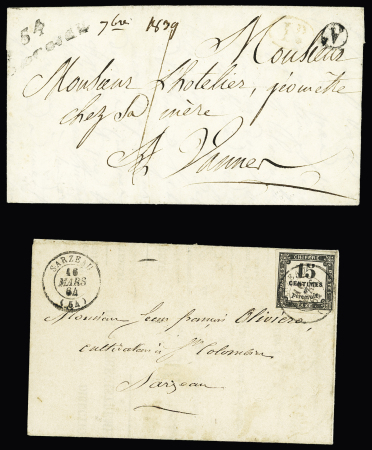 54
SARZEAU
7bre 1839
1D
A
Monsieur
Monsieur Lhotelier, géomètre
chez sa mère
A Vannes
SARZEAU
16
MARS
64
(54)
CHIFFRE
15
CENTIMES
à
Percevoir
Monsieur françois Olivièro,
cultivateur à St Colombier
Sarzeau